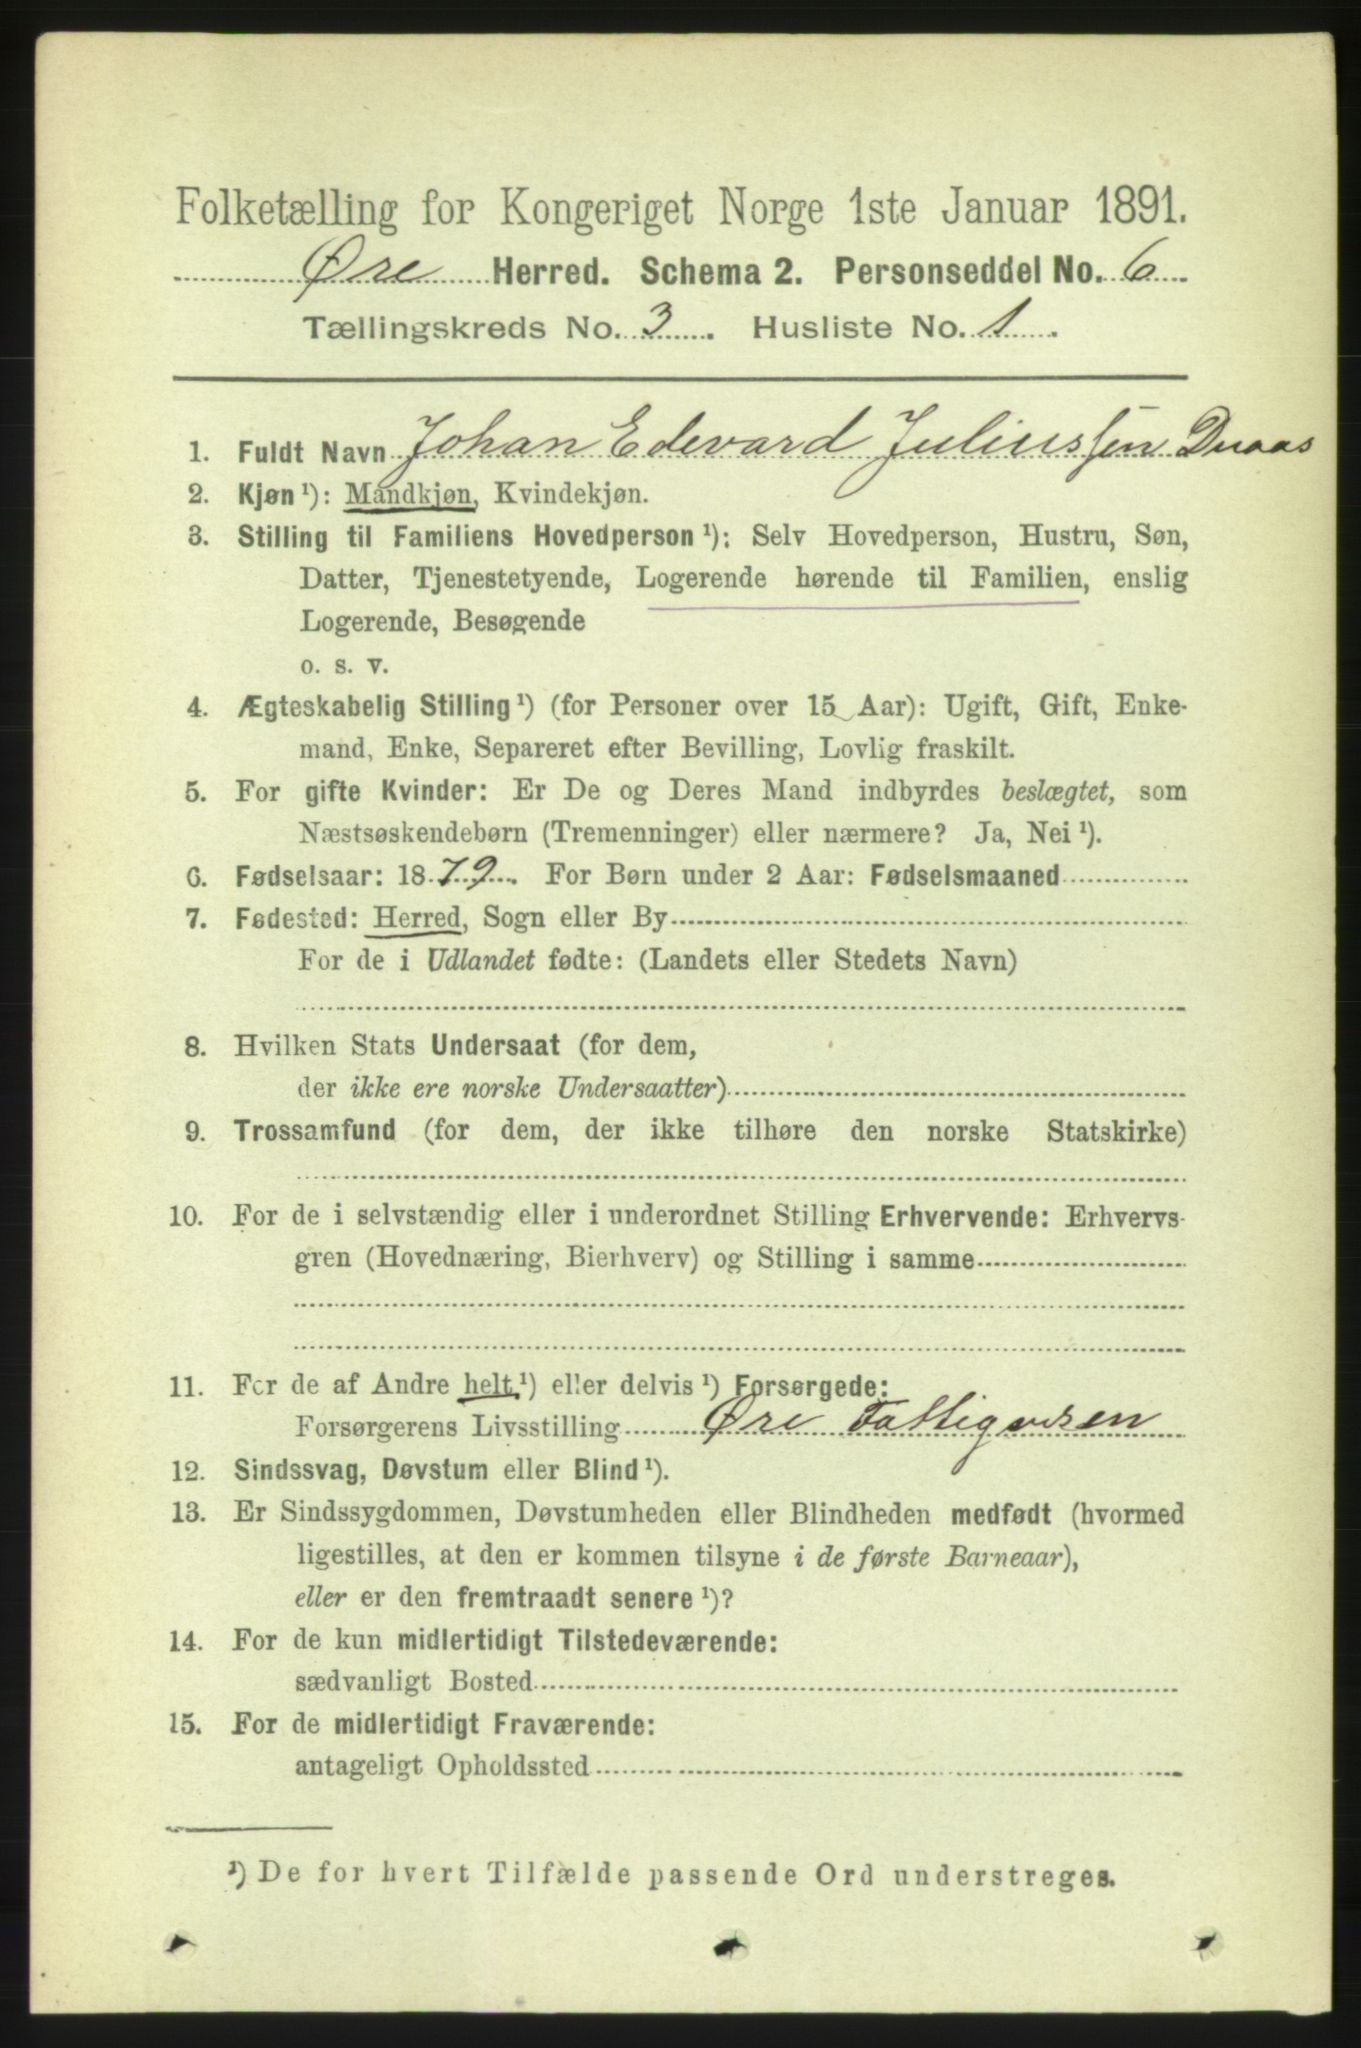 Folketælling for Kongeriget Norge 1ste Januar 1891.
Øre Herred. Schema 2. Personseddel No. 6
Tællingskreds No. 3. Husliste No. 1.
1. Fuldt Navn Johan Edevard Juliussen
2. Kjøn¹): Mandkjøn, Kvindekjøn.
3. Stilling til Familiens Hovedperson¹): Selv Hovedperson, Hustru, Søn,
Datter, Tjenestetyende, Logerende hørende til Familien, enslig
Logerende, Besøgende
o. s. v.
4. Ægteskabelig Stilling¹) (for Personer over 15 Aar): Ugift, Gift, Enke-
mand, Enke, Separeret efter Bevilling, Lovlig fraskilt.
5. For gifte Kvinder: Er De og Deres Mand indbyrdes beslægtet, som
Næstsøskendebørn (Tremenninger) eller nærmere? Ja, Nei¹).
6. Fødselsaar: 1879. For Børn under 2 Aar: Fødselsmaaned
7. Fødested: Herred, Sogn eller By
For de i Udlandet fødte: (Landets eller Stedets Navn)
8. Hvilken Stats Undersaat (for dem,
der ikke ere norske Undersaatter)
9. Trossamfund (for dem, der ikke tilhøre den norske Statskirke)
10. For de i selvstændig eller i underordnet Stilling Erhvervende: Erhvervs-
gren (Hovednæring, Bierhverv) og Stilling i samme
11. For de af Andre helt¹) eller delvis¹) Forsørgede:
Forsørgerens Livsstilling Øre Fattigvæsen
12. Sindssvag, Døvstum eller Blind¹).
13. Er Sindssygdommen, Døvstumheden eller Blindheden medfødt (hvormed
ligestilles, at den er kommen tilsyne i de første Barneaar),
eller er den fremtraadt senere¹)?
14. For de kun midlertidigt Tilstedeværende:
sædvanligt Bosted
15. For de midlertidigt Fraværende:
antageligt Opholdssted
¹) De for hvert Tilfælde passende Ord understreges.